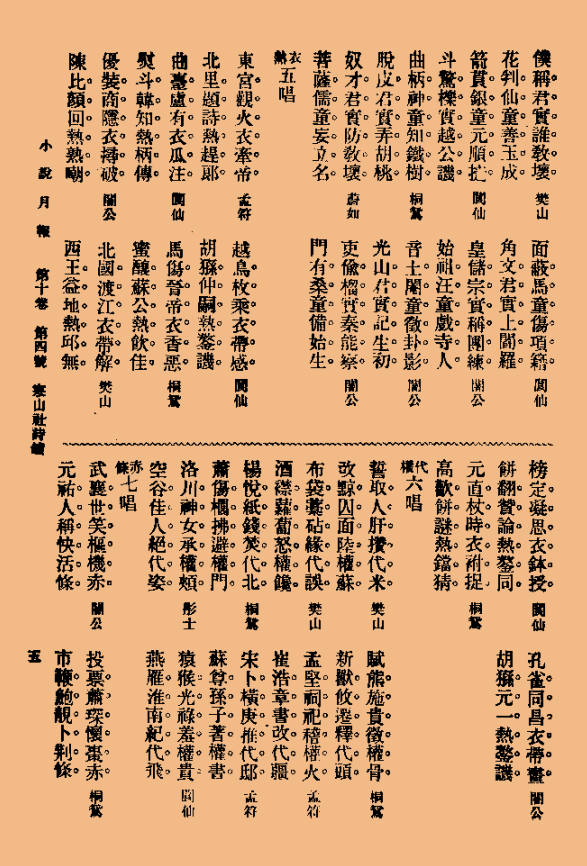 僕稱君實誰教壞 樊山 面蔽馬童傷項籍 閬仙
花判仙童善玉成 角文君實上閻羅
箭貫銀童元順拦 閬仙 皇儲宗實稱團練 闇公
斗驚櫟實越公譏 始祖汪童戲寺人
曲柄神童知鐵樹 桐鴛 音土闍童徵卦影 闇公
脫皮君實弄胡桃 光山君實記生初
奴才君實防教壞 蔚如 吏偷榴實秦能察 闇公
菩薩儒童妄立名 門有桑童備始生
衣熱五唱
東宮觀火衣牽帝 孟符 越鳥枚乘衣帶感 閬仙
北里題詩熱趕郎 胡猻仲嗣熱鏊譏
曲臺盧有衣瓜注 閬仙 馬傷晉帝衣香惡 桐鴛
熨斗韓知熱柄傳 蜜釀蘇公熱飲佳
優裝商隱衣撏破 闇公 北國渡江衣帶解 樊山
陳比顏回熱熟嘲 西王益地熱邱無
榜定凝思衣鉢授 閬仙 孔雀同昌衣帶畫 闇公
餅翻贊論熱鏊同 胡猻元一熱鏊譏
元直杖時衣袝捉 桐鴛
高歡餅謎熱鐺猜
代權六唱
誓取人肝攢代米 樊山 賦熊施貴徵權骨 桐鴛
改黥囚面陸權蘇 新獻攸遷釋代頭
布袋藁砧緣代誤 樊山 孟堅祠祀稽權火 孟符
酒襟蘿蔔怒權饞 崔浩章書改代彊
楊悅紙錢焚代北 桐鴛 宋卜橫庚推代邸 孟符
蕭傷櫩拂避權門 蘇尊孫子著權書
洛川神女承權頰 彤士 猿猴光祿羞權貴 閬仙
空谷佳人絕代姿 燕雁淮南紀代飛
赤條七唱
武襄世笑樞機赤 闇公 投票蕭琛懷棗赤 桐鴛
元祐人稱快活條 市鞭鮑靚卜荆條
小說月報 第十卷 第四號 寒山社詩鐘 五